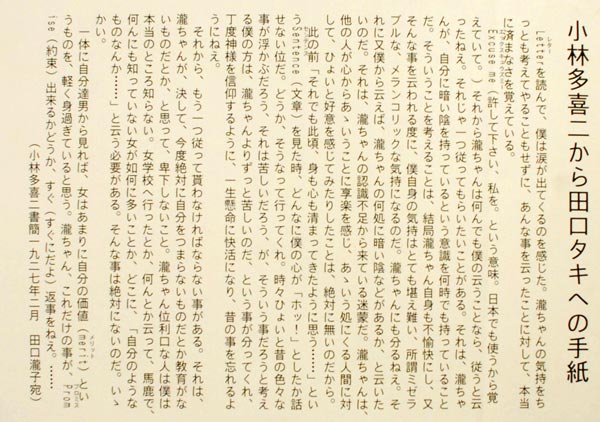 小林多喜二から田口タキへの手紙
Letterを読んで、僕は涙が出てくるのを感じた。瀧ちゃんの気持をち
っとも考えてやることもせずに、あんな事を云ったことに対して、本当
に済まなさを覚えている。
Excuse me（許して下さい、私を。という意味。日本でも使うから覚
えていて。）それから瀧ちゃんは何んでも僕の云うことなら、従うと云
ったねえ。それじゃ一つ従ってもらいたいことがある。それは、瀧ちゃ
んが、自分に暗い陰を持っているという意識を何時でも持っていること
だ。そういうことを考えることは、結局瀧ちゃん自身も不愉快にし、又
そんな事を云われる度に、僕自身の気持はとても堪え難い、所謂ミゼラ
ブルな、メランコリックな気持になるのだ。瀧ちゃんにも分るねえ。そ
れに又僕から云えば、瀧ちゃんの何処に暗い陰などがあるか、と云いた
いのだ。それは、瀧ちゃんの認識不足から来ている迷蒙だ。瀧ちゃんは、
他の人が心からあゝいうことに享楽を感じ、あゝいう処にくる人間に対
して、ひょいと好意を感じてみたりしたことは、絶対に無いのだから。
此の前「それでも此頃、身も心も清まってきたように思う……」とい
うSentence（文章）を見た時、どんなに僕の心が「ホッ！」としたか話
せない位だ。どうか、そうなって行ってくれ。時々ひょいと昔の色々な
事が浮かぶだろう、それは苦しいだろう、が、そういう事だろうと考え
る僕の方は、瀧ちゃんよりずっと苦しいのだ、という事が分ってくれ、
丁度神様を信仰するように、一生懸命に快活になり、昔の事を忘れるよ
うにねえ。
それから、もう一つ従って貰わなければならない事がある。それは、
瀧ちゃんが、決して、今度絶対に自分をつまらないものだとか教育がな
いものだとか、と思って、卑下しないこと。瀧ちゃん位利口な人は僕は
本当のところ知らない。女学校へ行ったとか、何んとか云って、馬鹿で、
何んにも知っていない女が如何に多いことか、どこに、「自分のような
ものなんか……」と云う必要がある。そんな事は絶対にないのだ。いゝ
かい。
一体に自分達男から見れば、女はあまりに自分の価値（merit）とい
うものを、軽く身過ぎていると思う。瀧ちゃん、これだけの事が、Prom
ise（約束）出来るかどうか、すぐ（すぐにだよ）返事をねえ。……
（小林多喜二書簡一九二七年二月　田口瀧子宛）